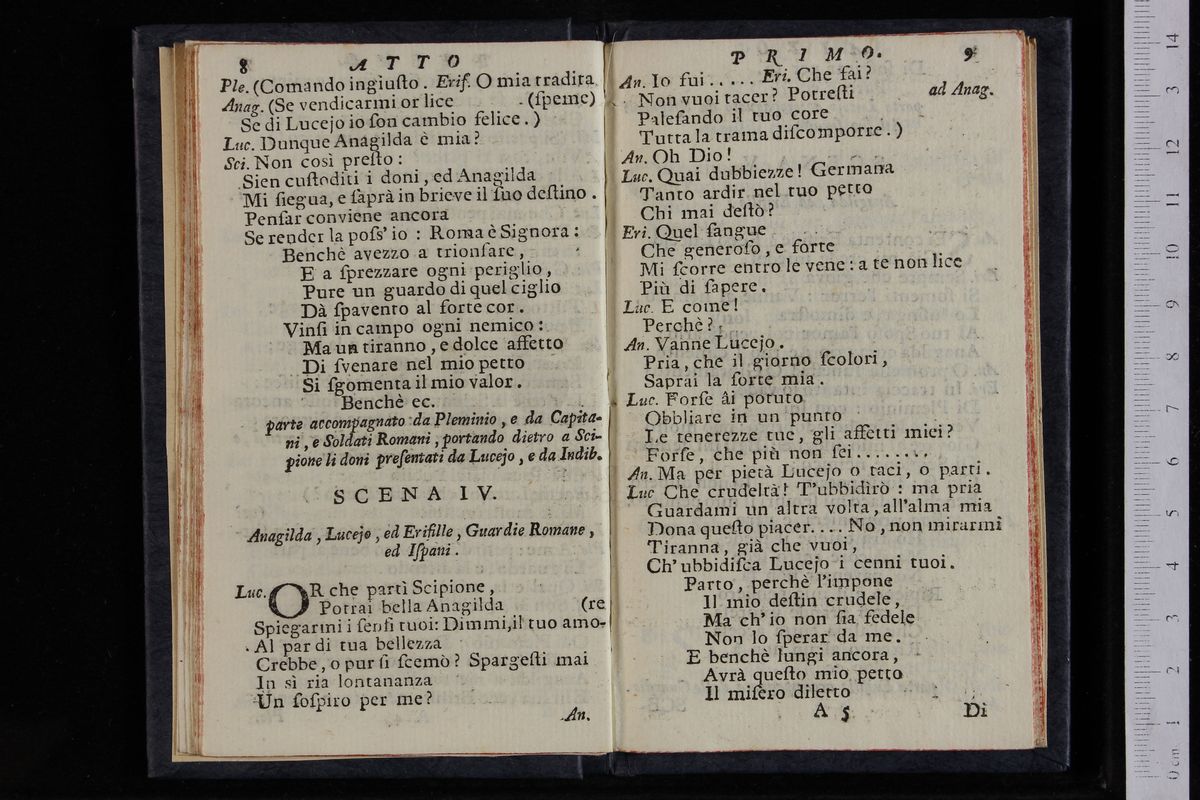 8 ATTO
Ple. (Comando ingiuſto. Eriſ. O mia tradita
Anag. (Se vendicarmi or lice (ſpeme)
Se di Lucejo io ſon cambio felice.)
Luc. Dunque Anagilda è mia?
Sci. Non così preſto:
Sien cuſtoditi i doni, ed Anagilda
Mi ſiegua, e ſaprà in brieve il ſuo deſtino.
Penſar conviene ancora
Se render la poſs' io: Roma è Signora:
Benchè avezzo a trionfare,
E a ſprezzare ogni periglio,
Pure un guardo di quel ciglio
Dà ſpavento al forte cor.
Vinſi in campo ogni nemico:
Ma un tiranno, e dolce affetto
Di ſvenare nel mio petto
Si ſgomenta il mio valor.
Benchè ec.
parte accompagnato da Pleminio, e da Capita-
ni, e Soldati Romani, portando dietro a Sci-
pione li doni preſentati da Lucejo, e da Indib.
SCENA IV.
Anagilda, Lucejo, ed Erifille, Guardie Romane,
ed Iſpani.
Luc. OR che partì Scipione,
Potrai bella Anagilda (re
Spiegarmi i ſenſi tuoi: Dimmi, il tuo amo-
Al par di tua bellezza
Crebbe, o pur ſi ſcemò? Spargeſti mai
In sì ria lontananza
Un ſoſpiro per me?
An.
PRIMO. 9
An. Io fui..... Eri. Che fai?
Non vuoi tacer? Potreſti ad Anag.
Paleſando il tuo core
Tutta la trama diſcomporre.)
An. Oh Dio!
Luc. Quai dubbiezze! Germana
Tanto ardir nel tuo petto
Chi mai deſtò?
Eri. Quel ſangue
Che generoſo, e forte
Mi ſcorre entro le vene: a te non lice
Più di ſapere.
Luc. E come!
Perchè?
An. Vanne Lucejo.
Pria, che il giorno ſcolori,
Saprai la ſorte mia.
Luc. Forſe âi potuto
Obbliare in un punto
Le tenerezze tue, gli affetti miei?
Forſe, che più non ſei........
An. Ma per pietà Lucejo o taci, o parti.
Luc Che crudeltà! T'ubbidirò: ma pria
Guardami un altra volta, all'alma mia
Dona queſto piacer.... No, non mirarmi
Tiranna, già che vuoi,
Ch' ubbidiſca Lucejo i cenni tuoi.
Parto, perchè l'impone
Il mio deſtin crudele,
Ma ch' io non ſia fedele
Non lo ſperar da me.
E benchè lungi ancora,
Avrà queſto mio petto
Il miſero diletto
A 5 Di